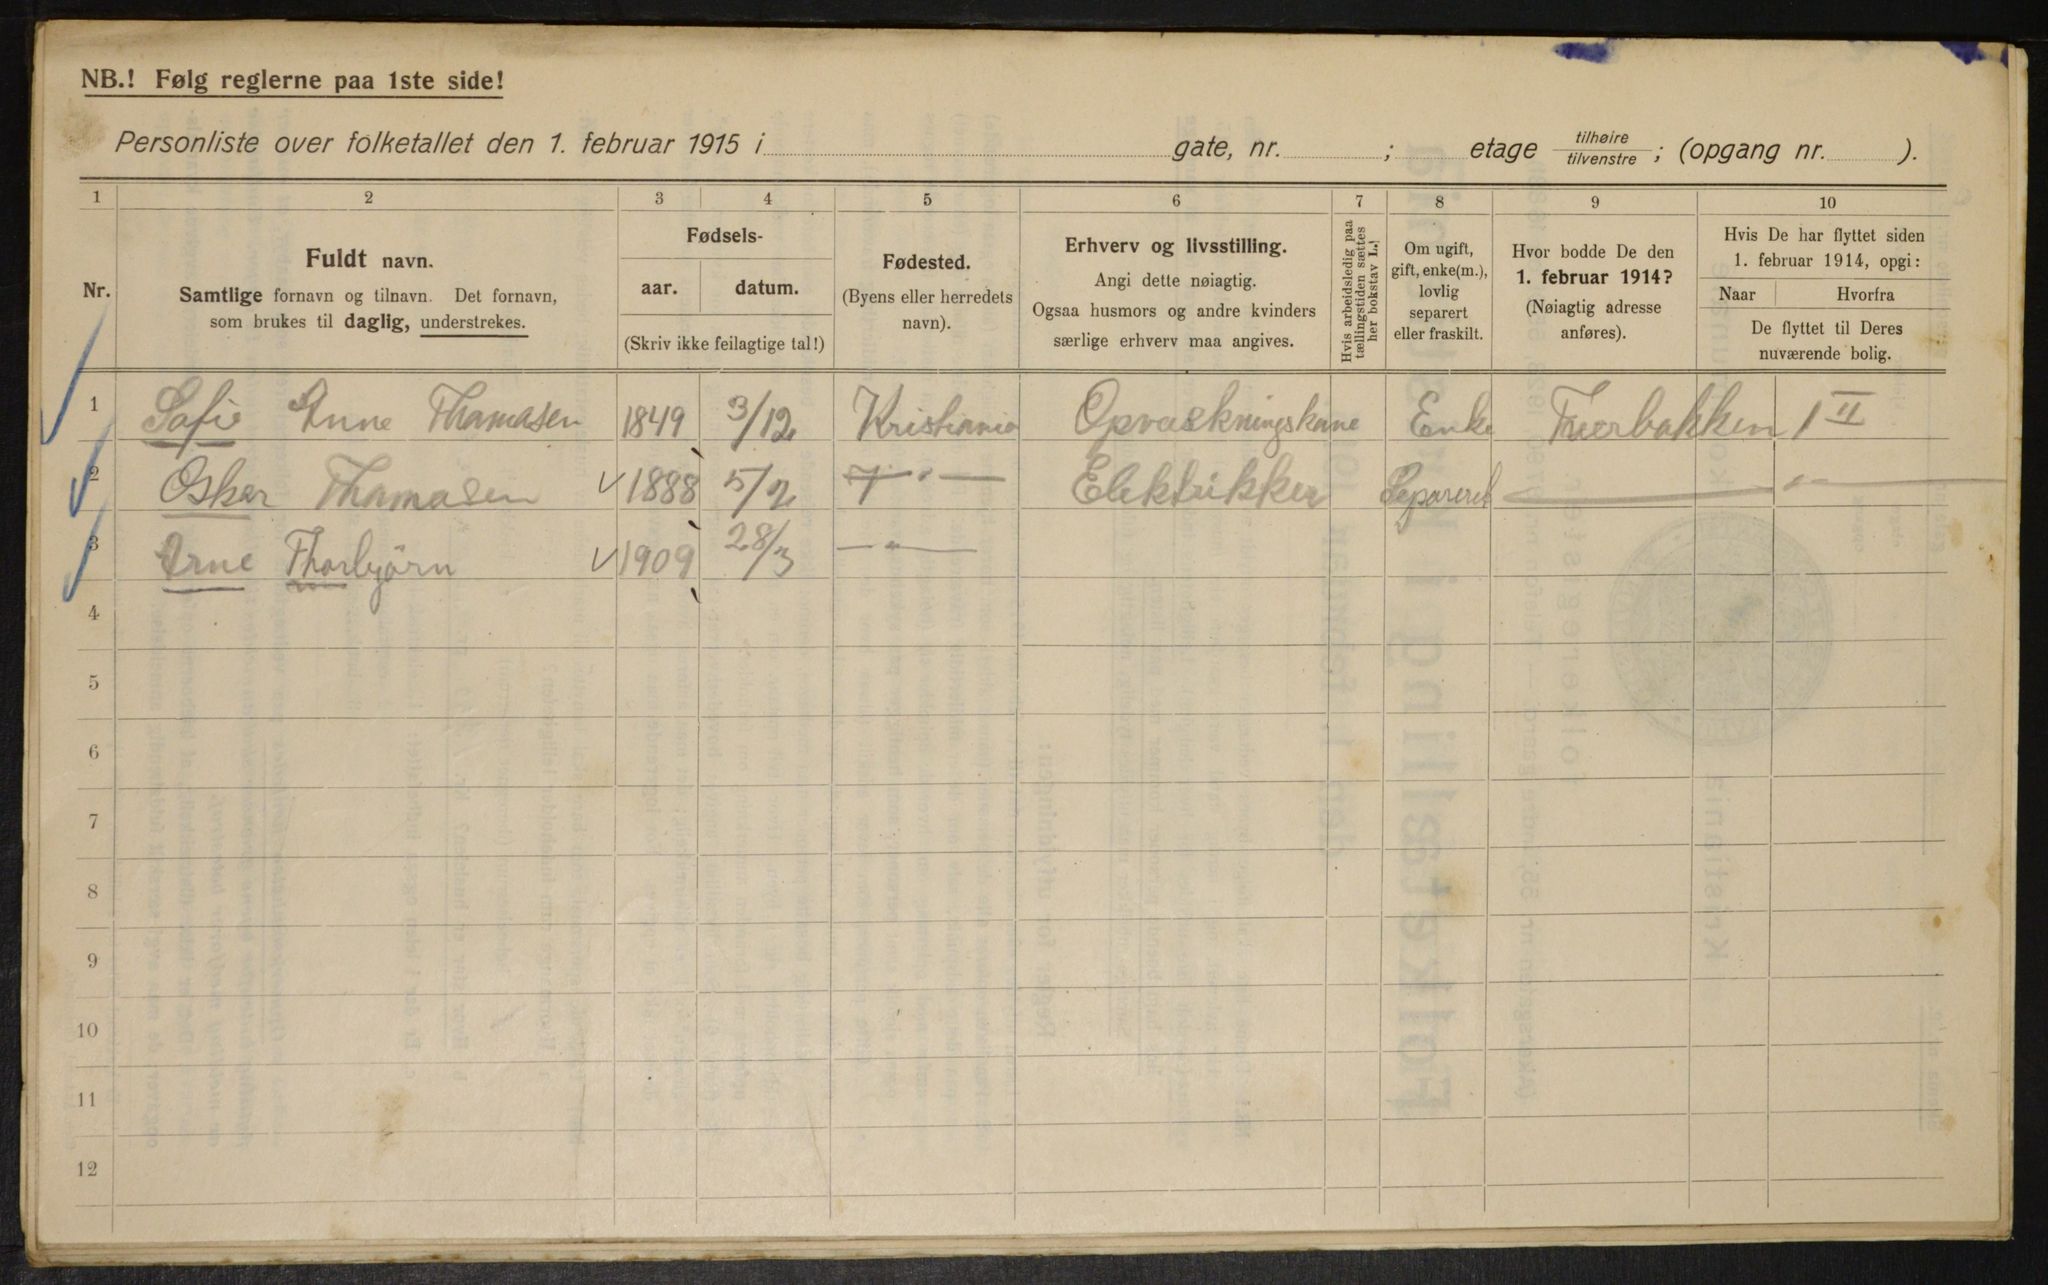 NB.! Følg reglerne paa 1ste side!
Personliste over folketallet den 1. februar 1915 i gate, nr. ; etage tilhøire/tilvenstre ; (opgang nr. ).
1 2 3 4 5 6 7 8 9 10
Nr.
Fuldt navn.
Samtlige fornavn og tilnavn. Det fornavn,
som brukes til daglig, understrekes.
Fødsels-
aar. datum.
(Skriv ikke feilagtige tal!)
Fødested.
(Byens eller herredets
navn).
Erhverv og livsstilling.
Angi dette nøiagtig.
Ogsaa husmors og andre kvinders
særlige erhverv maa angives.
Hvis arbeidsledig paa
tællingstiden sættes
her bokstav L.!
Om ugift,
gift, enke(m.),
lovlig
separert
eller fraskilt.
Hvor bodde De den
1. februar 1914?
(Nøiagtig adresse
anføres).
Hvis De har flyttet siden
1. februar 1914, opgi:
Naar Hvorfra
De flyttet til Deres
nuværende bolig.
1 Sofie Anne Thomasen 1849 3/12 Kristiania Opvaskningskone Enke 1 II
2 Oskar Thomasen 1888 5/2 — " — Elektrikker Separeret — " —
3 Arne Thorbjörn 1909 28/3 — " —
4
5
6
7
8
9
10
11
12